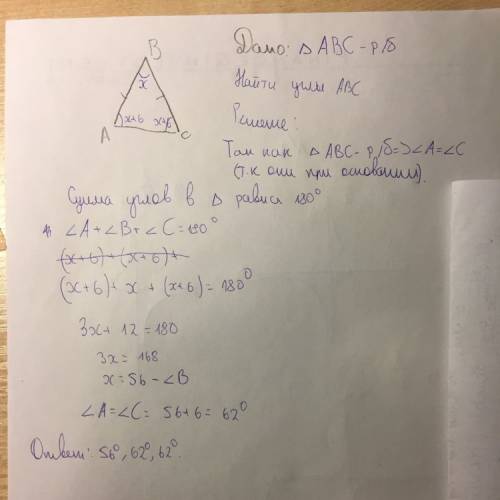 B
Дано: △ ABC - р/б
x
Найти углы ABC
x+6 x+6
A C
Решение:
Так как △ ABC - р/б => ∠A = ∠C
(т.к они при основании).
Сумма углов в △ равна 180°
∠A + ∠B + ∠C = 180°
(x+6) + (x+6) +
(x+6) + x + (x+6) = 180°
3x + 12 = 180
3x = 168
x = 56 - ∠B
∠A = ∠C = 56+6 = 62°
Ответ: 56°, 62°, 62°.